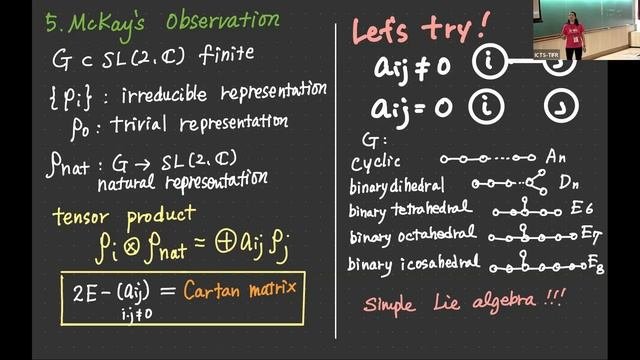 5. McKay's Observation
G ⊂ SL(2, ℂ) finite
{ρi} : irreducible representation
ρ0 : trivial representation
ρnat : G → SL(2, ℂ)
natural representation
tensor product
ρi ⊗ ρnat = ⊕ aij ρj
2E - (aij) = Cartan matrix
i.j≠0
Let's try!
aij ≠ 0 i
aij = 0 i j
G:
cyclic An
binary dihedral Dn
binary tetrahedral E6
binary octahedral E7
binary icosahedral E8
Simple Lie algebra !!!
ICTS-TIFR